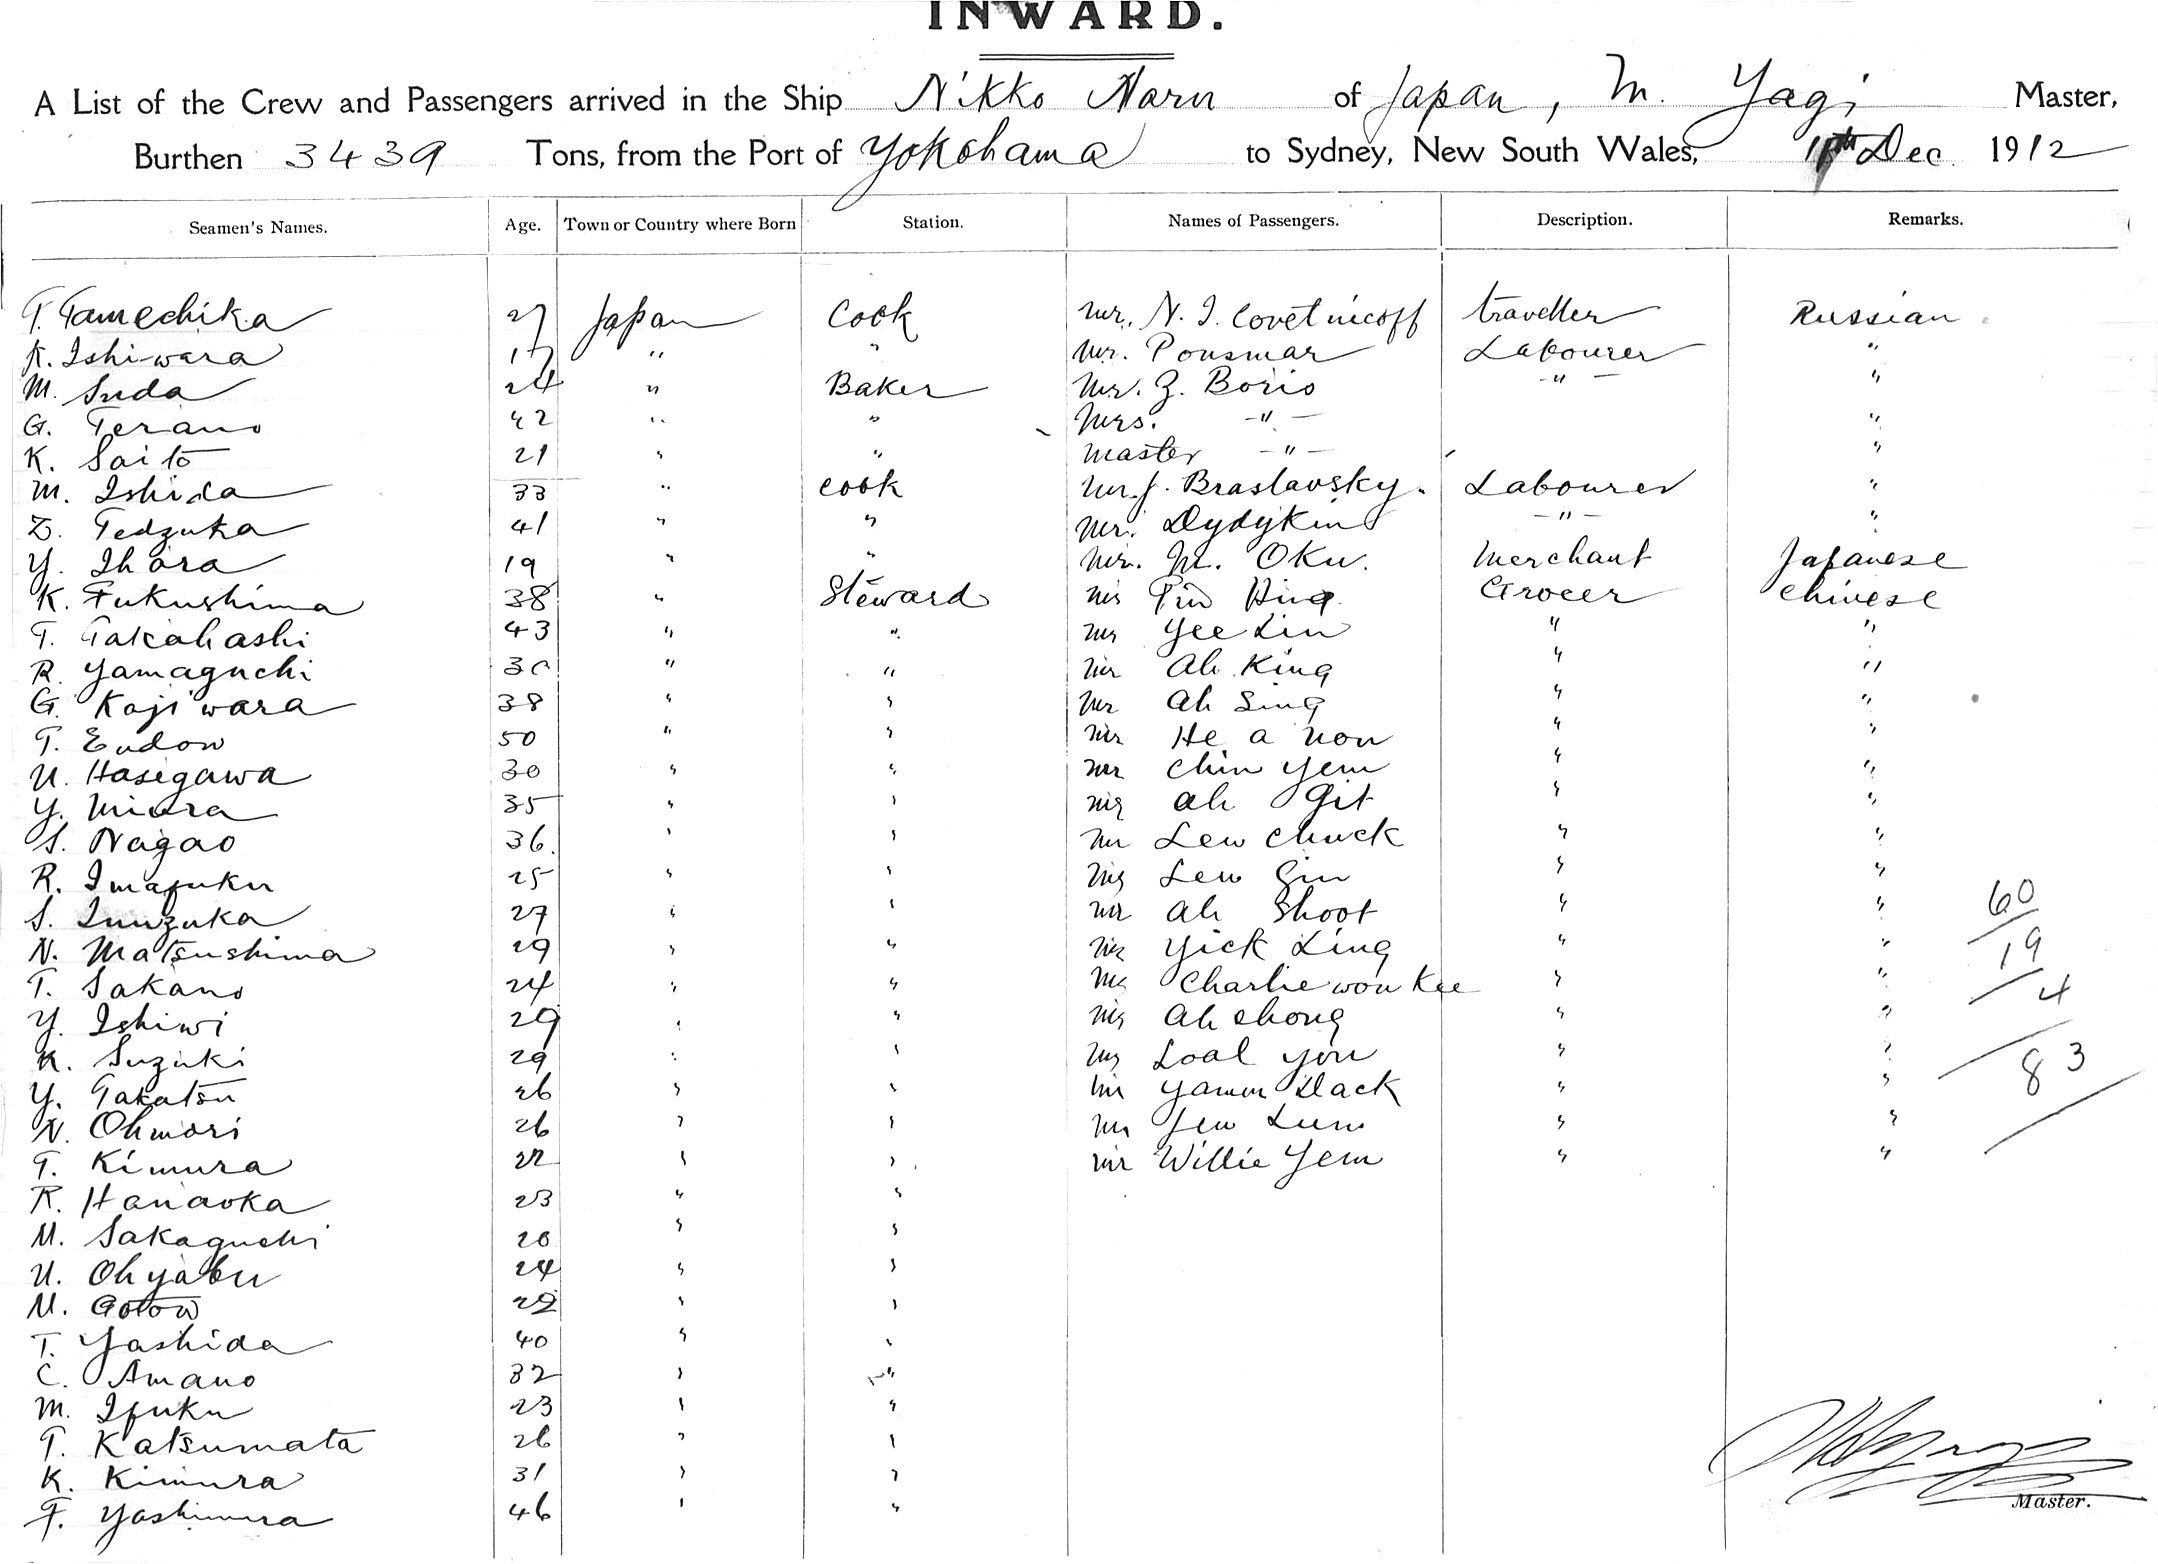 INWARD.
A List of the Crew and Passengers arrived in the Ship Nikko Maru of Japan, M. Yagi Master,
Burthen 3439 Tons, from the Port of Yokohama to Sydney, New South Wales, Dec. 1912
Seamen's Names. Age. Town or Country where Born Station. Names of Passengers. Description. Remarks.
T. Tamechika 27 Japan Cook Mr. N. I. Covetnicoff traveller Russian
K. Ishiwara 17 " " Mr. Pousmar Labourer "
M. Suda 24 " Baker Mr. Z. Borio — " — "
G. Terano 42 " " Mrs. — " — "
K. Saito 21 " " Master — " — "
M. Ishida 33 " cook Mr. J. Braslavsky. Labourer "
Z. Tedzuka 41 " " Mr. Dydykin — " — "
Y. Ihara 19 " " Mr. M. Oku. Merchant Japanese
K. Fukushima 38 " Steward Mr Pin Hing Grocer Chinese
T. Takahashi 43 " " Mr Yee Lin " "
R. Yamaguchi 30 " " Mr Ah King " "
G. Kajiwara 38 " " Mr Ah Sing " "
T. Endow 50 " " Mr He a non " "
U. Hasegawa 30 " " Mr Chin Yem " "
Y. Miura 35 " " Mr Ah Git " "
S. Nagao 36. " " Mr Lew Chuck " "
R. Imafuku 25 " " Mr Lew Gin " "
S. Inuzuka 27 " " Mr Ah Shoot " " 60
N. Matsushima 29 " " Mr Yick Ling " " 19
T. Sakano 24 " " Mr Charlie won Kee " " 4
Y. Ishiwi 29 " " Mr Ah chong " "
K. Suzuki 29 " " Mr Loal you " " 83
Y. Takatsu 26 " " Mr Yamm Dack " "
N. Ohmori 26 " " Mr Jew Lum " "
T. Kimura 22 " " Mr Willie Yem " "
R. Hanaoka 23 " "
M. Sakaguchi 20 " "
U. Ohyabu 24 " "
M. Gotow " "
T. Yoshida 40 " "
C. Amano 32 " "
M. Ifuku 23 " "
T. Katsumata 26 " "
K. Kimura 31 " "
F. Yoshimura 46 " "
Master.